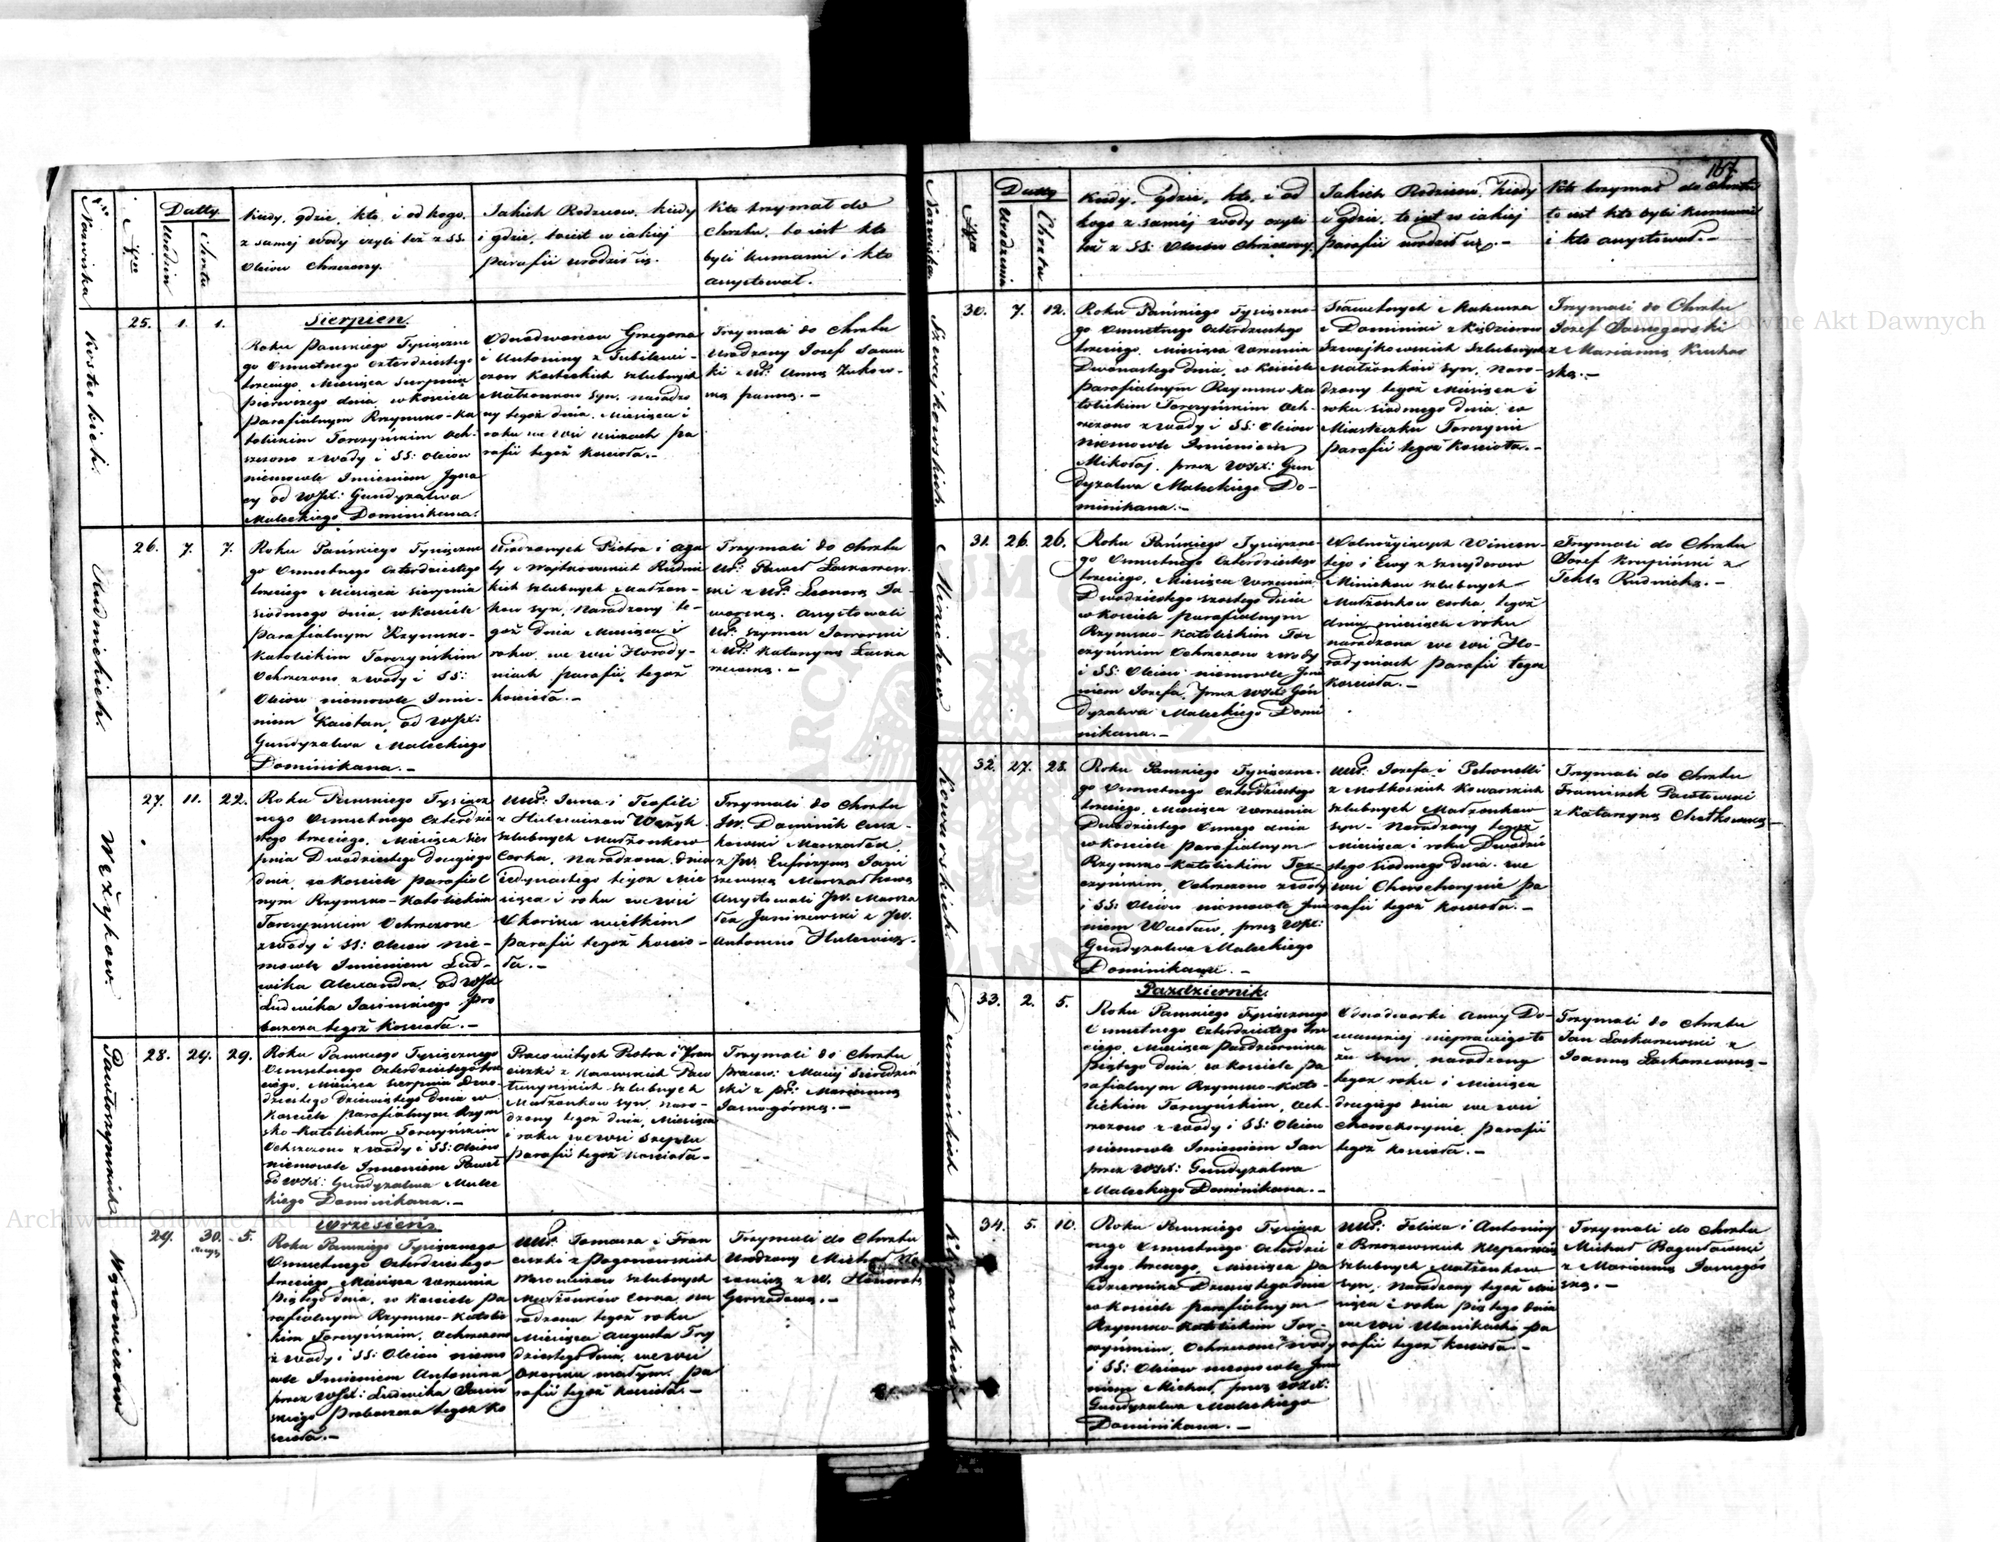 Nazwiska
N
Datty
Urodzin
Chrztu
Kiedy, gdzie, kto, i od kogo,
z samej wody czyli też z SS.
Oleiow Chrzczony.
Jakich Rodziców, kiedy
i gdzie, to iest w iakiej
Parafii urodził się.
Kto trzymał do
Chrztu, to iest kto
byli kumami i kto
assystował.
Kosteckich.
25.
1.
1.
Sierpien.
Roku Pańskiego Tysiączne
go Osmsetnego Czterdziestego
trzeciego, Miesiąca Sierpnia
pierwszego dnia, w kosciele
Parafialnym Rzymsko-Ka
tolickim Torczyńskim Och
rzczono z wody i SS: Oleiow
niemowle Imieniem Igna
cy od WJX: Gundyzalwa
Maleckiego Dominikana.
Odnodworcow Gregorza
i Antoniny z
Kosteckich szlubnych
Małżonkow syn, narodzo
ny tegoż dnia, Miesiąca i
roku we wsi pa
rafii tegoż Kościoła.-
Trzymali do Chrztu
Urodzony Jozef Sawi
cki z Anną Żukow-
ską panną.-
Rudnickich.
26.
7.
7.
Roku Pańskiego Tysiączne
go Osmsetnego Czterdziestego
trzeciego Miesiąca Sierpnia
siodmego dnia, w Kosciele
Parafialnym Rzymsko-
Katolickim Torczyńskim
Ochrzczono z wody i SS:
Oleiow niemowle Imie-
niem Kaietan, od WJX:
Gundyzalwa Maleckiego
Dominikana.-
Urodzonych Piotra i Aga
ty z Woytkowskich Rudnic
kich szlubnych Małżon-
kow syn, Narodzony te-
goż dnia Miesiąca i
roku, we wsi Horody-
niach parafii tegoż
kościoła.-
Trzymali do Chrztu
Paweł Laskarzew-
ski z Leonorą Ja-
worską, assystowali
Szymon Jaworski
z Katarzyną Laska
rzewską.-
Wężykow.
27.
11.
22.
Roku Pańskiego Tysiącz
nego Osmsetnego Czterdzie
stego trzeciego, Miesiąca Sier
pnia Dwudziestego drugiego
dnia, w Kosciele Parafial
nym Rzymsko-Katolickim
Torczyńskim Ochrzczono
z wody i SS: Oleiow nie-
mowle Imieniem Lud-
wika Alexandra, od WJX
Ludwika Jasinskiego Pro
boszcza tegoż Kościoła.-
Jana i Teofili
z Hulewiczow Wężyk.
szlubnych Małżonkow
Corka, Narodzona dnia
iedynastego tegoż Mie
siąca i roku we wsi
wielkim
parafii tegoż Kościo-
ła.-
Trzymali do Chrztu
JW. Dominik
Marszałek
z JW: Eufrozyną Jani
szewską Marszałkową
Assystowali JW. Marsza
łek Janiszewski z JW.
Antoniną Hulewicz.-
28.
29.
29.
Roku Pańskiego Tysiącznego
Osmsetnego Czterdziestego trze
ciego, Miesiąca Sierpnia Dwu
dziestego dziewiątego Dnia w
Kosciele parafialnym Rzym
sko-Katolickim Torczyńskim
Ochrzczono z wody i SS: Oleiow
niemowle Imieniem Paweł
od WJX: Gundyzalwa Malec
kiego Dominikana.-
Pracowitych Piotra i Fran
ciszki z
szlubnych
Małżonkow syn, Naro-
dzony tegoż dnia, Miesiąca
i roku we wsi
Parafii tegoż Kościoła-
Trzymali do Chrztu
Pracow: Maciej
ski z Marianną
Jasnogórską.-
29.
30.
5.
Wrzesień
Roku Pańskiego Tysiącznego
Osmsetnego Czterdziestego
trzeciego, Miesiąca Wrzesnia
piątego dnia, w Kosciele Pa
rafialnym Rzymsko-Katolic
kim Torczyńskim, Ochrzczono
z wody i SS: Oleiow niemo
wle Imieniem Antonina
przez WJX: Ludwika Jasin
skiego Proboszcza tegoż Ko
ścioła.-
Tomasza i Fran
ciszki z Pogonowskich
szlubnych
Małżonków Corka, na
rodzona tegoż roku
Miesiąca Augusta Trzy
dziestego dnia, we wsi
małym, pa
rafii tegoż kościoła.-
Trzymali do Chrztu
Urodzony Michał
z W. Honoratą
167
Nazwiska
Datty
Urodzenia
Chrztu
Kiedy, Gdzie, kto, i od
kogo z samej wody czyli
też z SS. Oleiow Chrzczony.
Jakich Rodzicow, Kiedy
i gdzie, to iest w iakiej
parafii urodził się.-
Kto trzymał do Chrztu
to iest kto byli kumami
i kto assystował.-
Szwaykowskich.
30.
7.
12.
Roku Pańskiego Tysiączne-
go Osmsetnego Czterdziestego
trzeciego, Miesiąca Wrzesnia
Dwunastego dnia, w Kosciele
parafialnym Rzymsko-Ka
tolickim Torczyńskim Och-
rzczono z wody i SS: Oleiow
Niemowle Imieniem
Mikołaj, przez WJX: Gun
dyzalwa Maleckiego Do-
minikana.-
Sławetnych
i Dominiki z
Szwaykowskich szlubnych
Małżonkow syn, Naro-
dzony tegoż Miesiąca i
roku siodmego dnia, w
Miasteczku Torczynie
parafii tegoż Kościoła.-
Trzymali do Chrztu
Jozef
z Marianną Kuchar
ską.-
31.
26.
26.
Roku Pańskiego Tysiączne-
go Osmsetnego Czterdziestego
trzeciego, Miesiąca Wrzesnia
Dwudziestego szostego dnia
w Kosciele parafialnym
Rzymsko-Katolickim Tor
czyńskim Ochrzczono z wody
i SS: Oleiow niemowle Imie
niem Jozefa, przez WJX: Gun
dyzalwa Maleckiego Domi
nikana.-
Wincen-
tego i Ewy z Sznyderow
szlubnych
Małżonkow Corka, tegoż
dnia, miesiąca i roku
narodzona we wsi Ho-
rodyniach parafii tegoż
Kościoła.-
Trzymali do Chrztu
Jozef Krupiński z
Teklą Rudnicką.-
Kowarskich.
32.
27.
28.
Roku Pańskiego Tysiączne-
go Osmsetnego Czterdziestego
trzeciego, Miesiąca Wrzesnia
Dwudziestego Osmego dnia
w kosciele Parafialnym
Rzymsko-Katolickim Tor-
czyńskim, Ochrzczono z wody
i SS: Oleiow niemowle Imie
niem Wacław, przez WJX:
Gundyzalwa Maleckiego
Dominikana.-
Jozefa i Petronelli
z Kowarskich
szlubnych Małżonkow
syn- Narodzony tegoż
Miesiąca i roku Dwudzie
stego siodmego dnia we
wsi Chorochorynie pa
rafii tegoż Kościoła.-
Trzymali do Chrztu
Franciszek Pawłowski
z Katarzyną
Dumanskich
33.
2.
5.
Pazdziernik.
Roku Pańskiego Tysiącznego
Osmsetnego Czterdziestego trze
ciego, Miesiąca Pazdziernika
Piątego dnia, w Kosciele pa
rafialnym Rzymsko-Kato-
lickim Torczyńskim, Och-
rzczono z wody i SS: Oleiow
niemowle Imieniem Jan
przez WJX: Gundyzalwa
Maleckiego Dominikana.-
Odnodworki Anny Du-
manskiej nieprawego ło
ża syn, narodzony
tegoż roku i Miesiąca
drugiego dnia we wsi
Chorochorynie, parafii
tegoż kościoła.-
Trzymali do Chrztu
Jan Laskarzewski z
Joanną Laskarzewską.-
Kleparskich
34.
5.
10.
Roku Pańskiego Tysiącz
nego Osmsetnego Czterdzie
stego trzeciego, Miesiąca Pa
zdziernika Dziesiątego dnia
w kosciele parafialnym
Rzymsko-Katolickim Tor-
czyńskim, Ochrzczono z wody
i SS: Oleiow niemowle Imie
niem Michał, przez WJX:
Gundyzalwa Maleckiego
Dominikana.-
Felixa i Antoniny
z Brzozowskich Kleparskich
szlubnych Małżonkow
syn, Narodzony tegoż Mie
siąca i roku piątego dnia
we wsi pa
rafii tegoż kościoła.-
Trzymali do Chrztu
Michał Bogusławski
z Marianną Jasnogór
ską.-
Archiwum Główne Akt Dawnych
Archiwum Główne Akt Dawnych